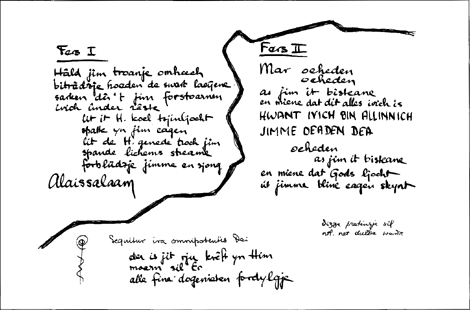 Fers I
Hâld jim troanje omheech
bitrúdzje hoeden de swart leagene
sarken dûs't jim forstoarnen
ivich ûnder rêste
Ut it H. koel tsjinljocht
spatte yn jim eagen
lit de H. genede troch jim
spande lichems streame
forblûdzje jimme en sjong
Alaissalaam
Fers II
Mar oeheden
oeheden
as jim it bisteane
en miene dat dit alles ivich is
HWANT IVICH BIN ALLINNICH
JIMME OEADEN DEA
oeheden
as jim it bisteane
en miene dat Gods ljocht
út jimme bline eagen skynt
sil
net
Sequitur ira omnipotentis Dei
der is jit oju krêft yn Him
moarn sil Er
alle fine dogeniten fordylgje